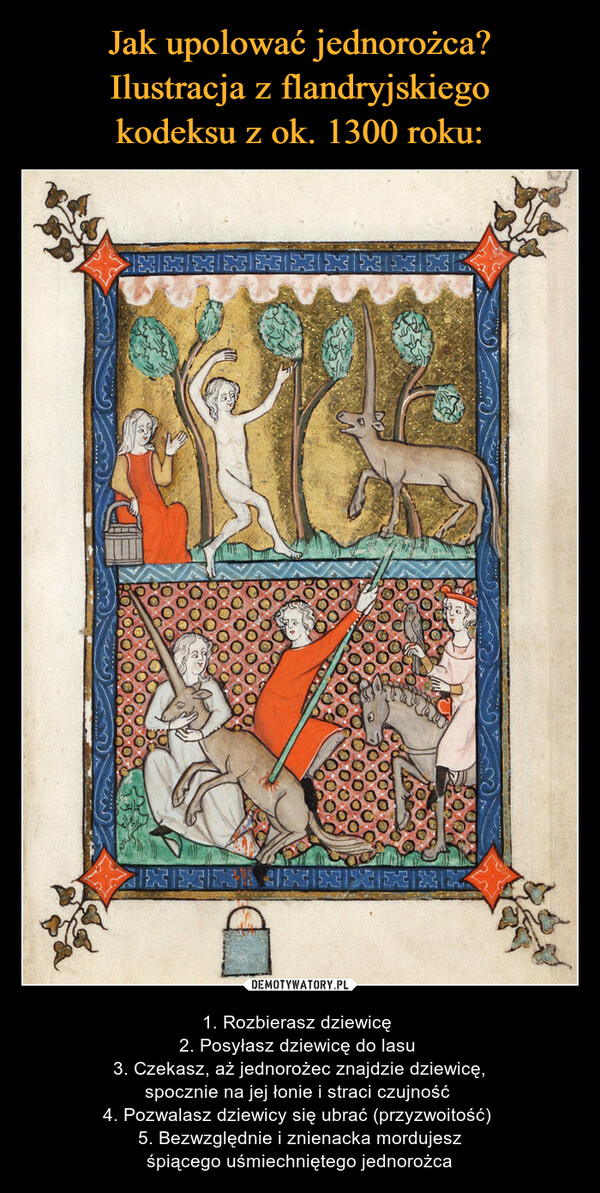 Jak upolować jednorożca?
Ilustracja z flandryjskiego
kodeksu z ok. 1300 roku:
DEMOTYWATORY.PL
1. Rozbierasz dziewicę
2. Posyłasz dziewicę do lasu
3. Czekasz, aż jednorożec znajdzie dziewicę,
spocznie na jej łonie i straci czujność
4. Pozwalasz dziewicy się ubrać (przyzwoitość)
5. Bezwzględnie i znienacka mordujesz
śpiącego uśmiechniętego jednorożca